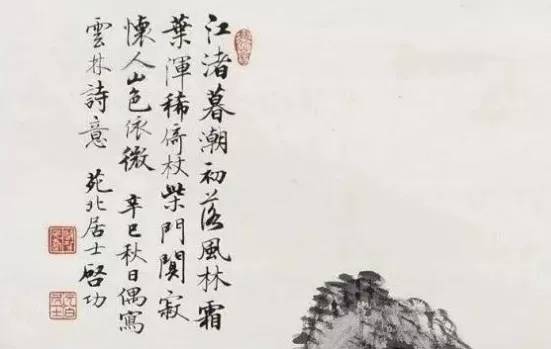 江渚暮潮初落風林霜
葉渾稀倚杖柴門闃寂
懐人山色依微 辛巳秋日偶寫
雲林詩意 苑北居士啓功